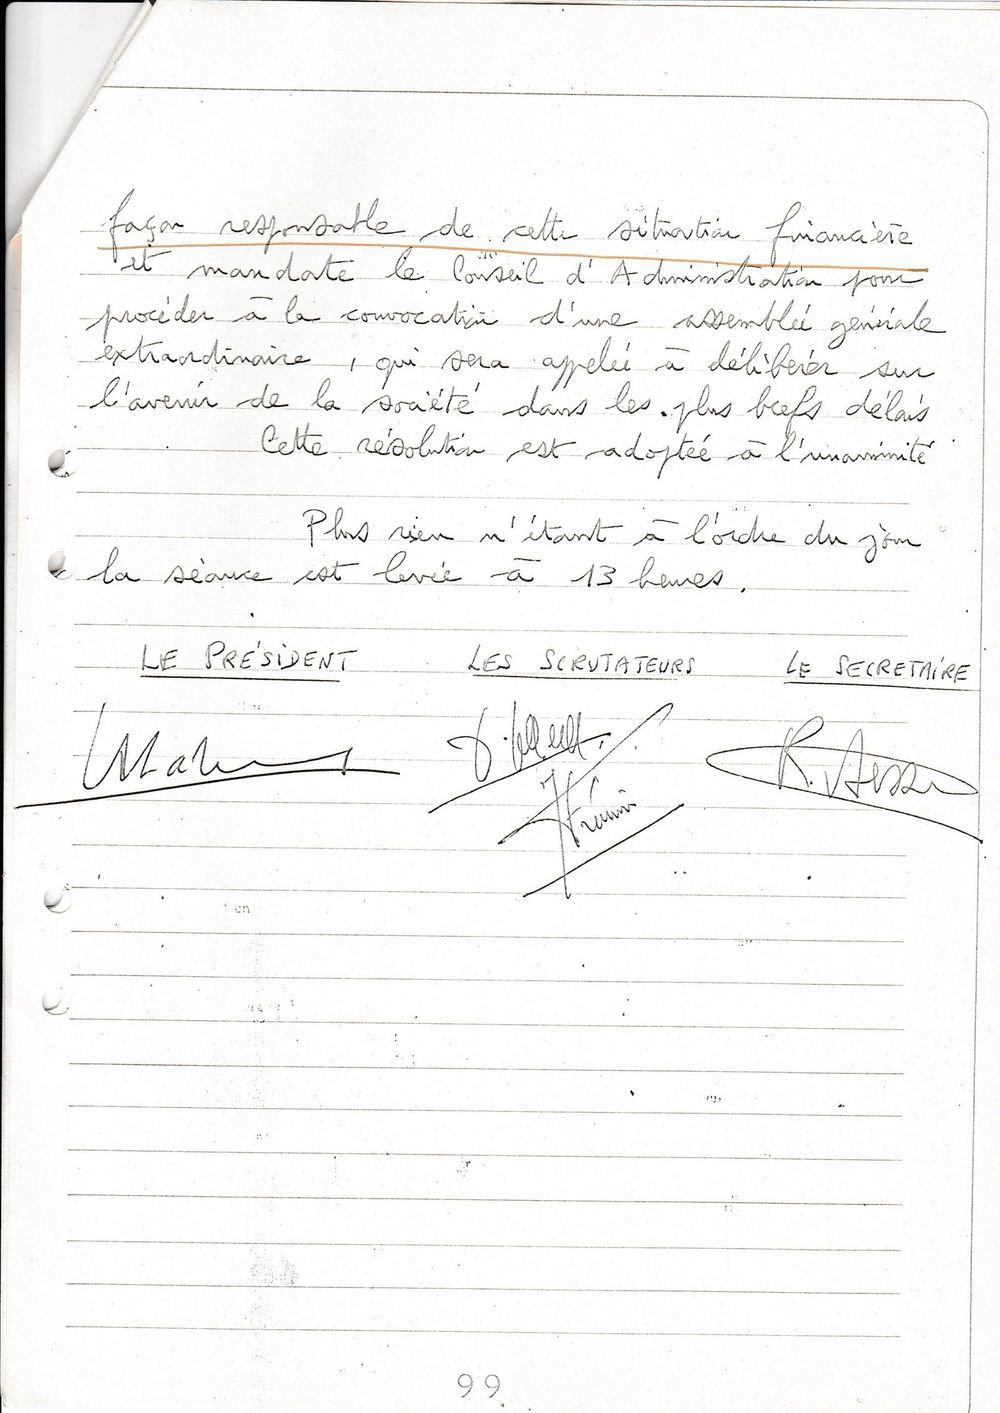 façon responsable de cette situation financière
et mandate le Conseil d'Administration pour
procéder à la convocation d'une assemblée générale
extraordinaire, qui sera appelée à délibérer sur
l'avenir de la société dans les plus brefs délais
Cette résolution est adoptée à l'unanimité
Plus rien n'étant à l'ordre du jour
la séance est levée à 13 heures.
LE PRÉSIDENT LES SCRUTATEURS LE SECRETAIRE
R.
99